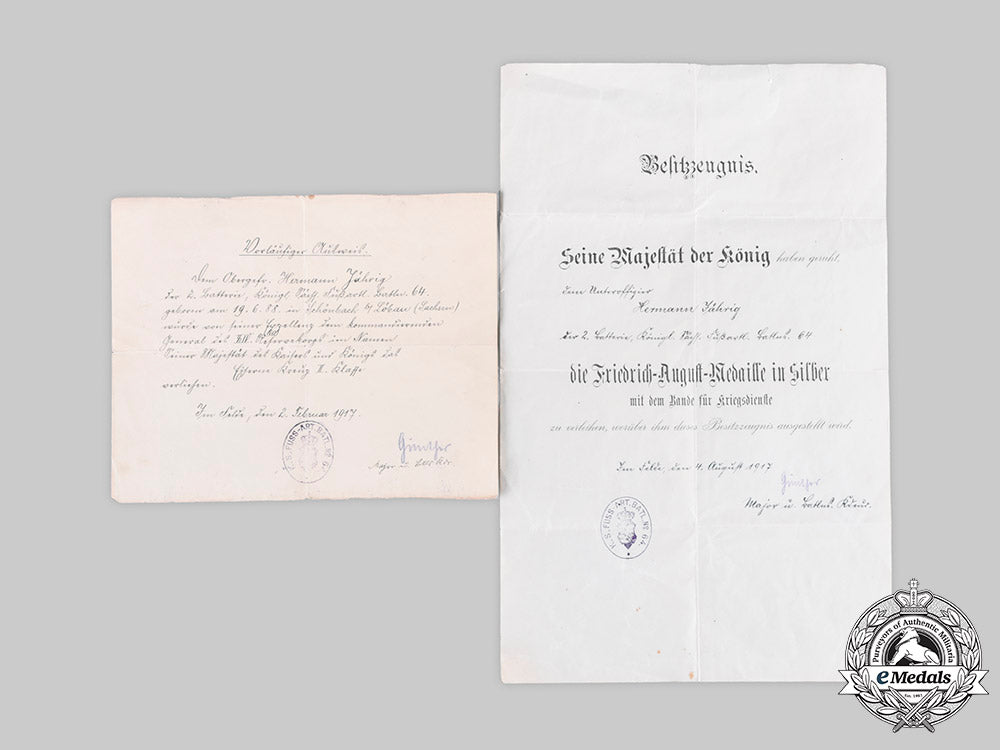 Vorläufiger Ausweis.
Dem Obergefr. Hermann Jährig
der 2. Batterie, Königl. Sächs. Fußartl. Batln. 64.
geboren am 19.6.88 in Schönbach b/ Löbau (Sachsen)
wurde von seiner Exzellenz dem kommandierenden
General des Reservekorps im Namen
Seiner Majestät des Kaisers und Königs das
Eiserne Kreuz II. Klasse
verliehen.
Im Felde, den 2. Februar 1917.
K.S. FUSS-ART. BATL. No 64.
Günther
Major u.
Besitzzeugnis.
Seine Majestät der König haben geruht,
dem Unteroffizier
Hermann Jährig
der 2. Batterie, Königl. Sächs. Fußartl. Batlns. 64
die Friedrich-August-Medaille in Silber
mit dem Bande für Kriegsdienste
zu verleihen, worüber ihm dieses Besitzzeugnis ausgestellt wird.
Im Felde, den 4. August 1917
Günther
Major u. Batlns. Kdeur.
K.S. FUSS-ART. BATL. No 64.
Purveyors of Authentic Militaria
eMedals